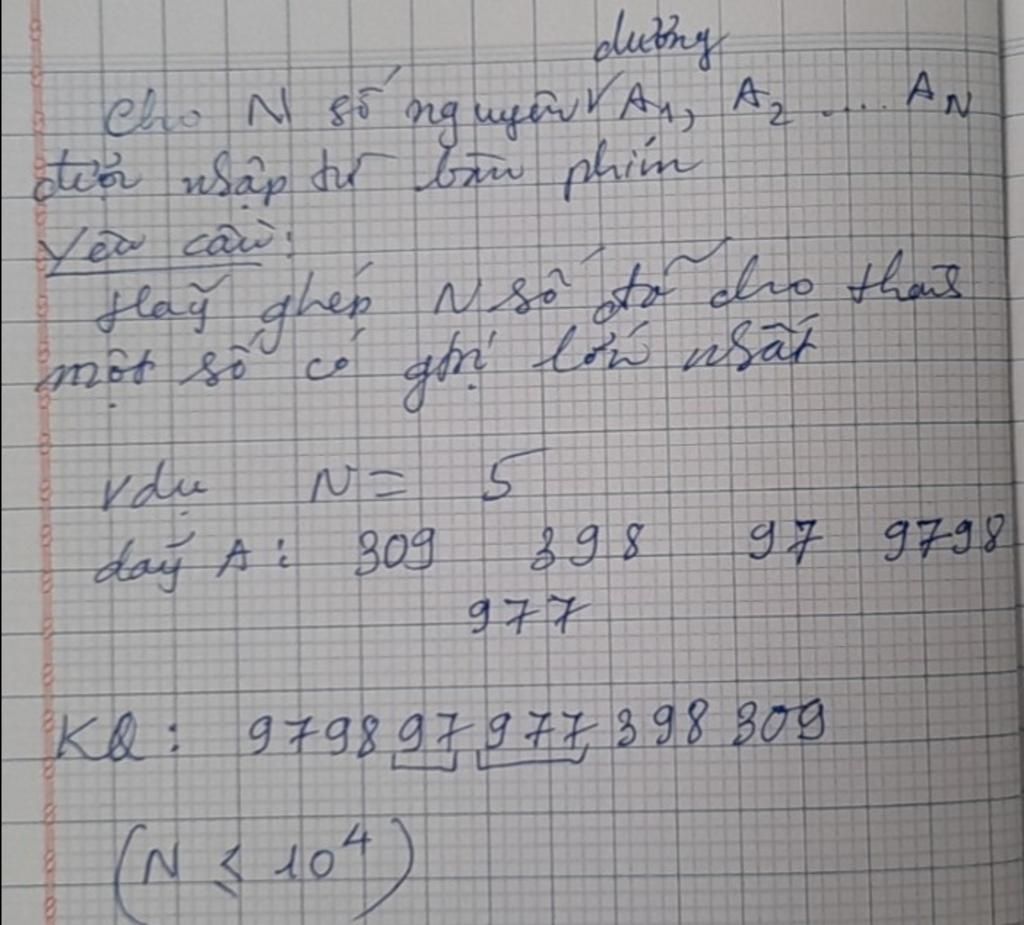 dương
Cho N số nguyên √ A1, A2 .... AN
được nhập từ bàn phím
Yêu cầu:
Hãy ghép N số đã cho thành
một số có gtrị lớn nhất
Vdụ N = 5
dãy A: 309 398 97 9798
977
KQ: 9798 97 977 398 309
(N ≤ 10⁴)